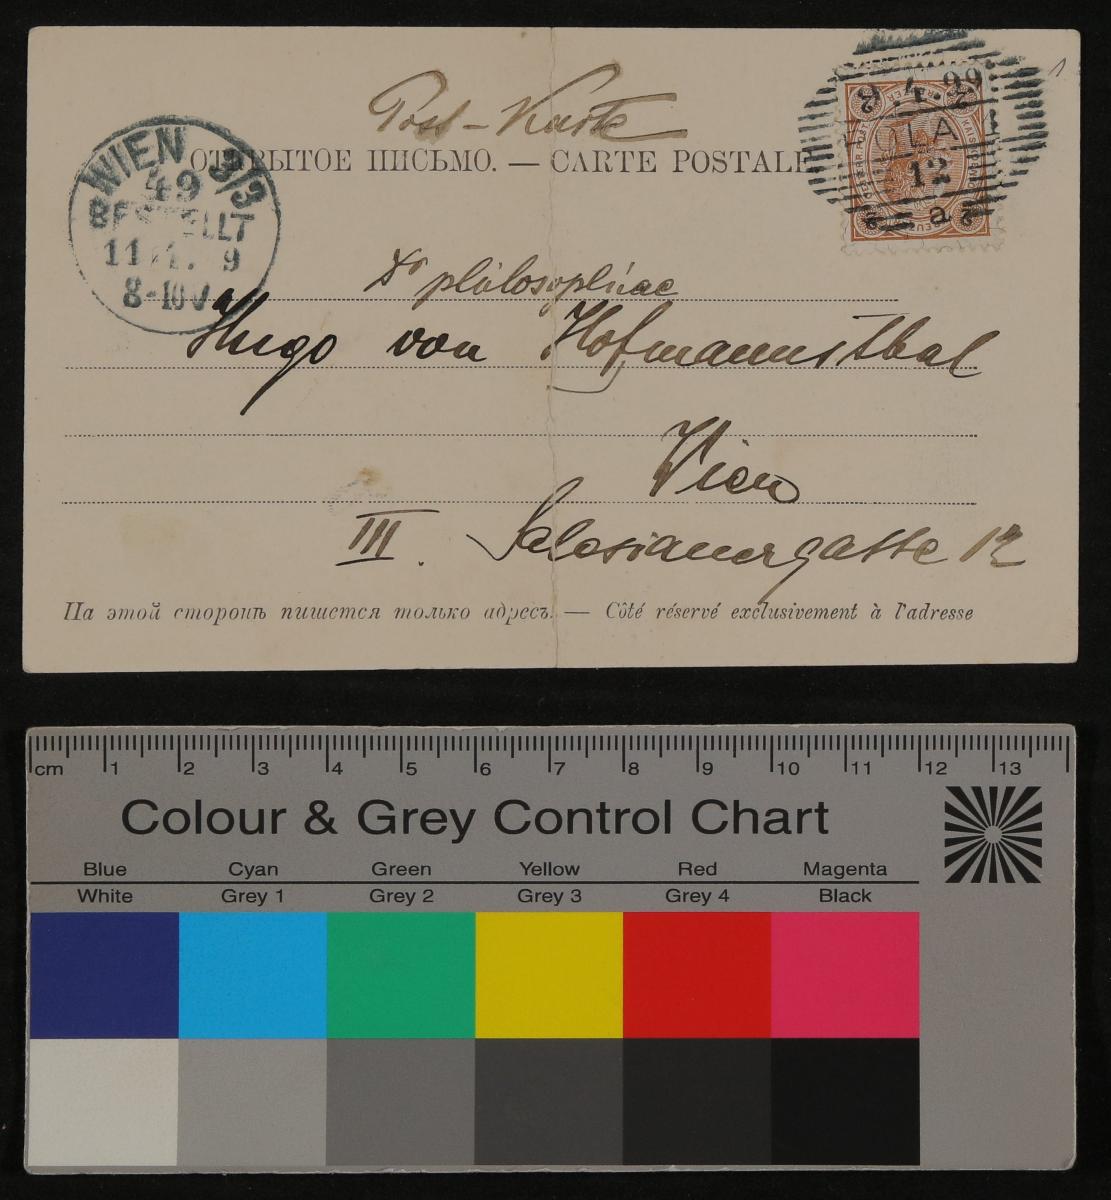 Post-Karte
ОТКРЫТОЕ ПИСЬМО. — CARTE POSTALE
WIEN 3/3
49
BESTELLT
8-10 V
9.4.99
12
a
Dr philosophiae
Hugo von Hofmannsthal
Wien
III. Salesianergasse 12
На этой сторонѣ пишется только адресъ. — Côté réservé exclusivement à l'adresse
cm 1 2 3 4 5 6 7 8 9 10 11 12 13
Colour & Grey Control Chart
Blue Cyan Green Yellow Red Magenta
White Grey 1 Grey 2 Grey 3 Grey 4 Black